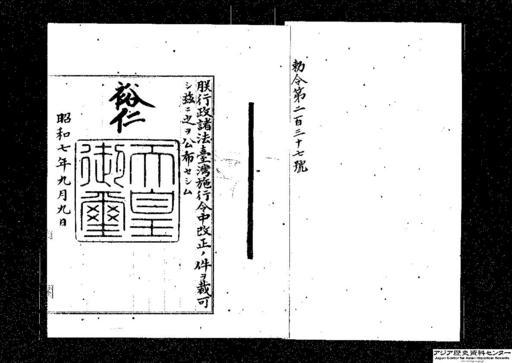 勅令第二百三十七號
朕行政諸法臺灣施行令中改正ノ件ヲ裁可
シ茲ニ之ヲ公布セシム
裕仁
天皇
御璽
昭和七年九月九日
アジア歴史資料センター
Japan Center for Asian Historical Records